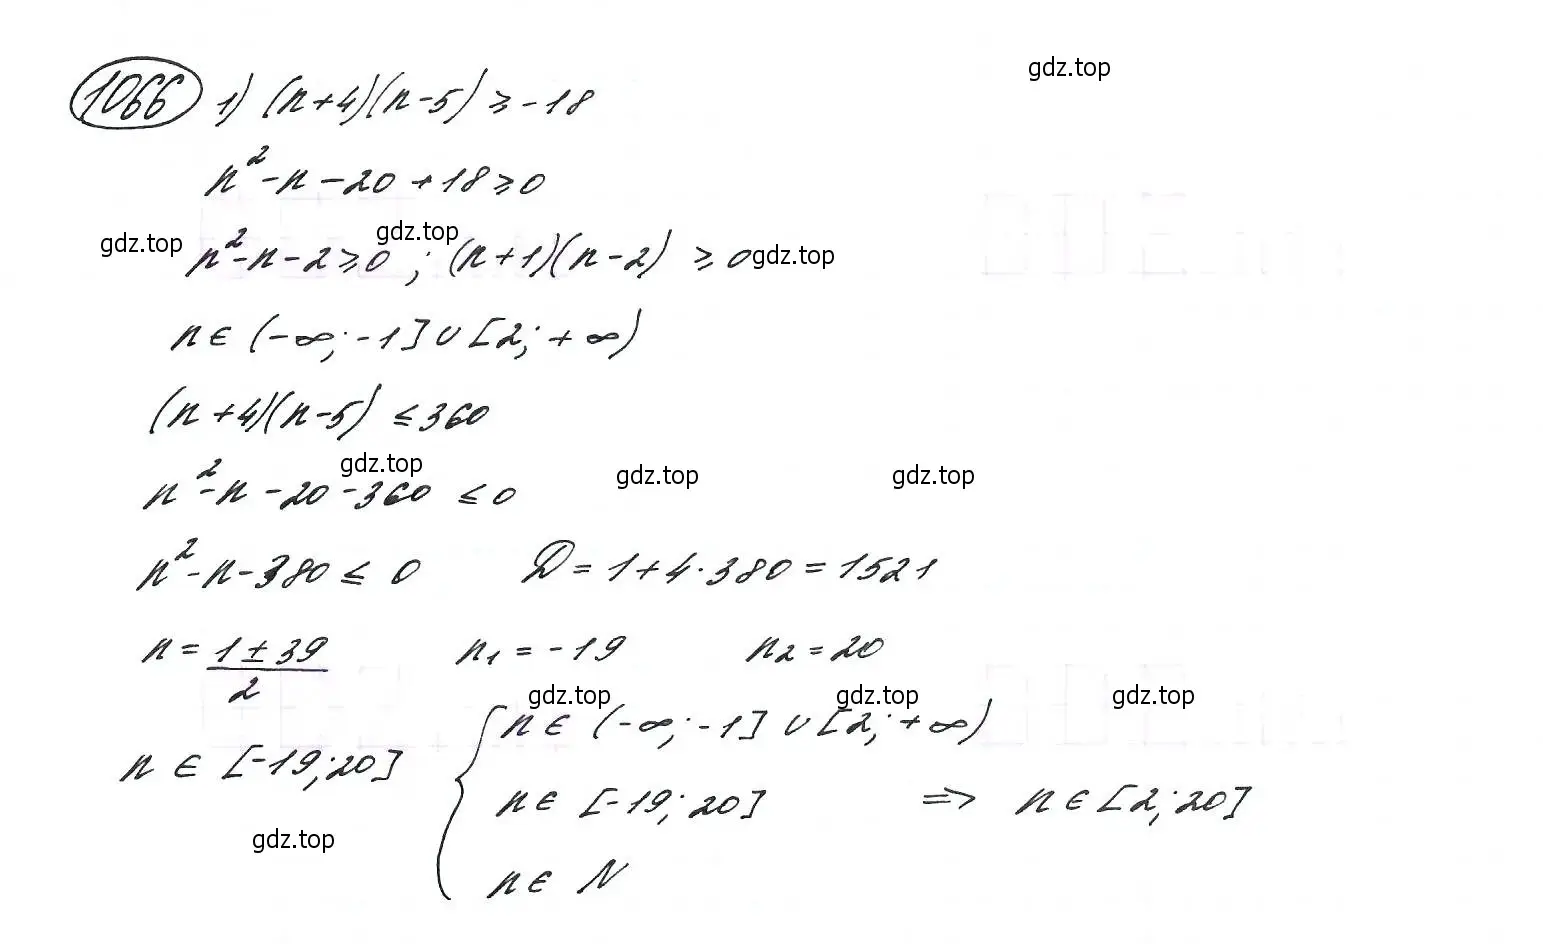 gdz.top
1066 1) (n+4)(n-5) ≥ -18
n² - n - 20 + 18 ≥ 0
gdz.top gdz.top
n² - n - 2 ≥ 0 ; (n+1)(n-2) ≥ 0 gdz.top
n ∈ (-∞; -1] ∪ [2; +∞)
(n+4)(n-5) ≤ 360
gdz.top gdz.top gdz.top
n² - n - 20 - 360 ≤ 0
n² - n - 380 ≤ 0 D = 1 + 4·380 = 1521
n = (1 ± 39)/2 n₁ = -19 n₂ = 20
gdz.top gdz.top gdz.top
n ∈ [-19; 20] { n ∈ (-∞; -1] ∪ [2; +∞)
n ∈ [-19; 20] => n ∈ [2; 20]
gdz.top
n ∈ N